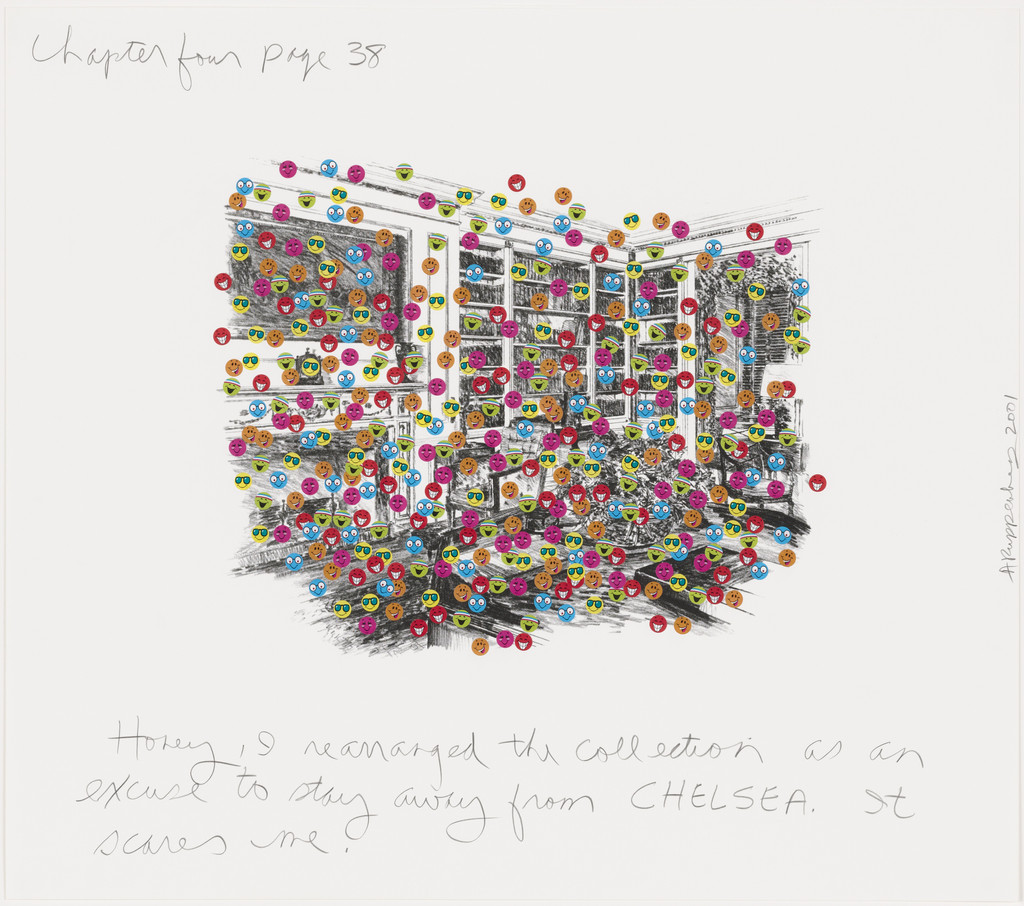 Chapter four page 38
Honey, I rearranged the collection as an
excuse to stay away from CHELSEA. It
scares me.
A Ruppersberg 2001